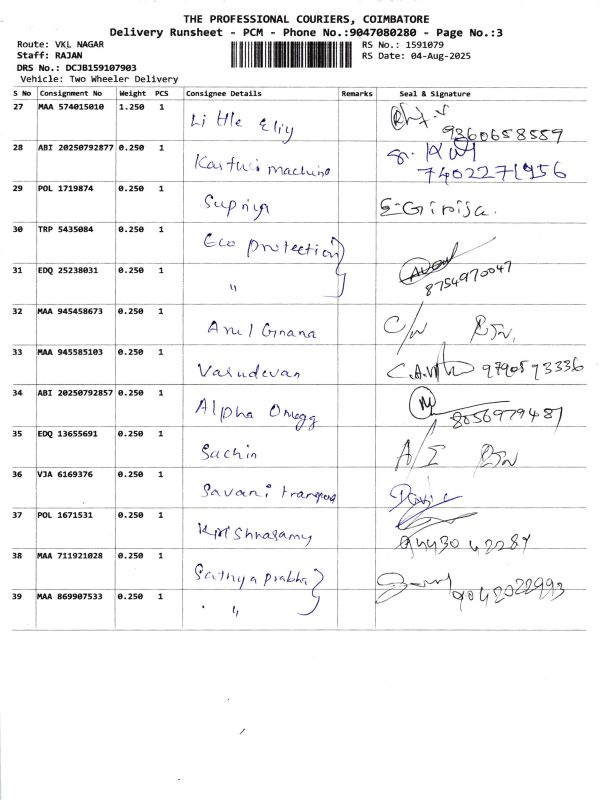 THE PROFESSIONAL COURIERS, COIMBATORE
Delivery Runsheet - PCM - Phone No.:9047080280 - Page No.:3
Route: VKL NAGAR RS No.: 1591079
Staff: RAJAN RS Date: 04-Aug-2025
DRS No.: DCJB159107903
Vehicle: Two Wheeler Delivery
S No Consignment No Weight PCS Consignee Details Remarks Seal & Signature
27 MAA 574015010 1.250 1 Little Eliy 9360658559
28 ABI 20250792877 0.250 1 Kasturi machine 7402271956
29 POL 1719874 0.250 1 Supriya E-Girija.
30 TRP 5435084 0.250 1 Eco protection
31 EDQ 25238031 0.250 1 " 8754970047
32 MAA 945458673 0.250 1 Arul Gnana C/N
33 MAA 945585103 0.250 1 Vasudevan 9790593336
34 ABI 20250792857 0.250 1 Alpha Omegg 8056979487
35 EDQ 13655691 0.250 1 Sachin A/I
36 VJA 6169376 0.250 1 Savani transport
37 POL 1671531 0.250 1 Krishnasamy 9443042287
38 MAA 711921028 0.250 1 Sathya prabha
39 MAA 869907533 0.250 1 " 9042022993